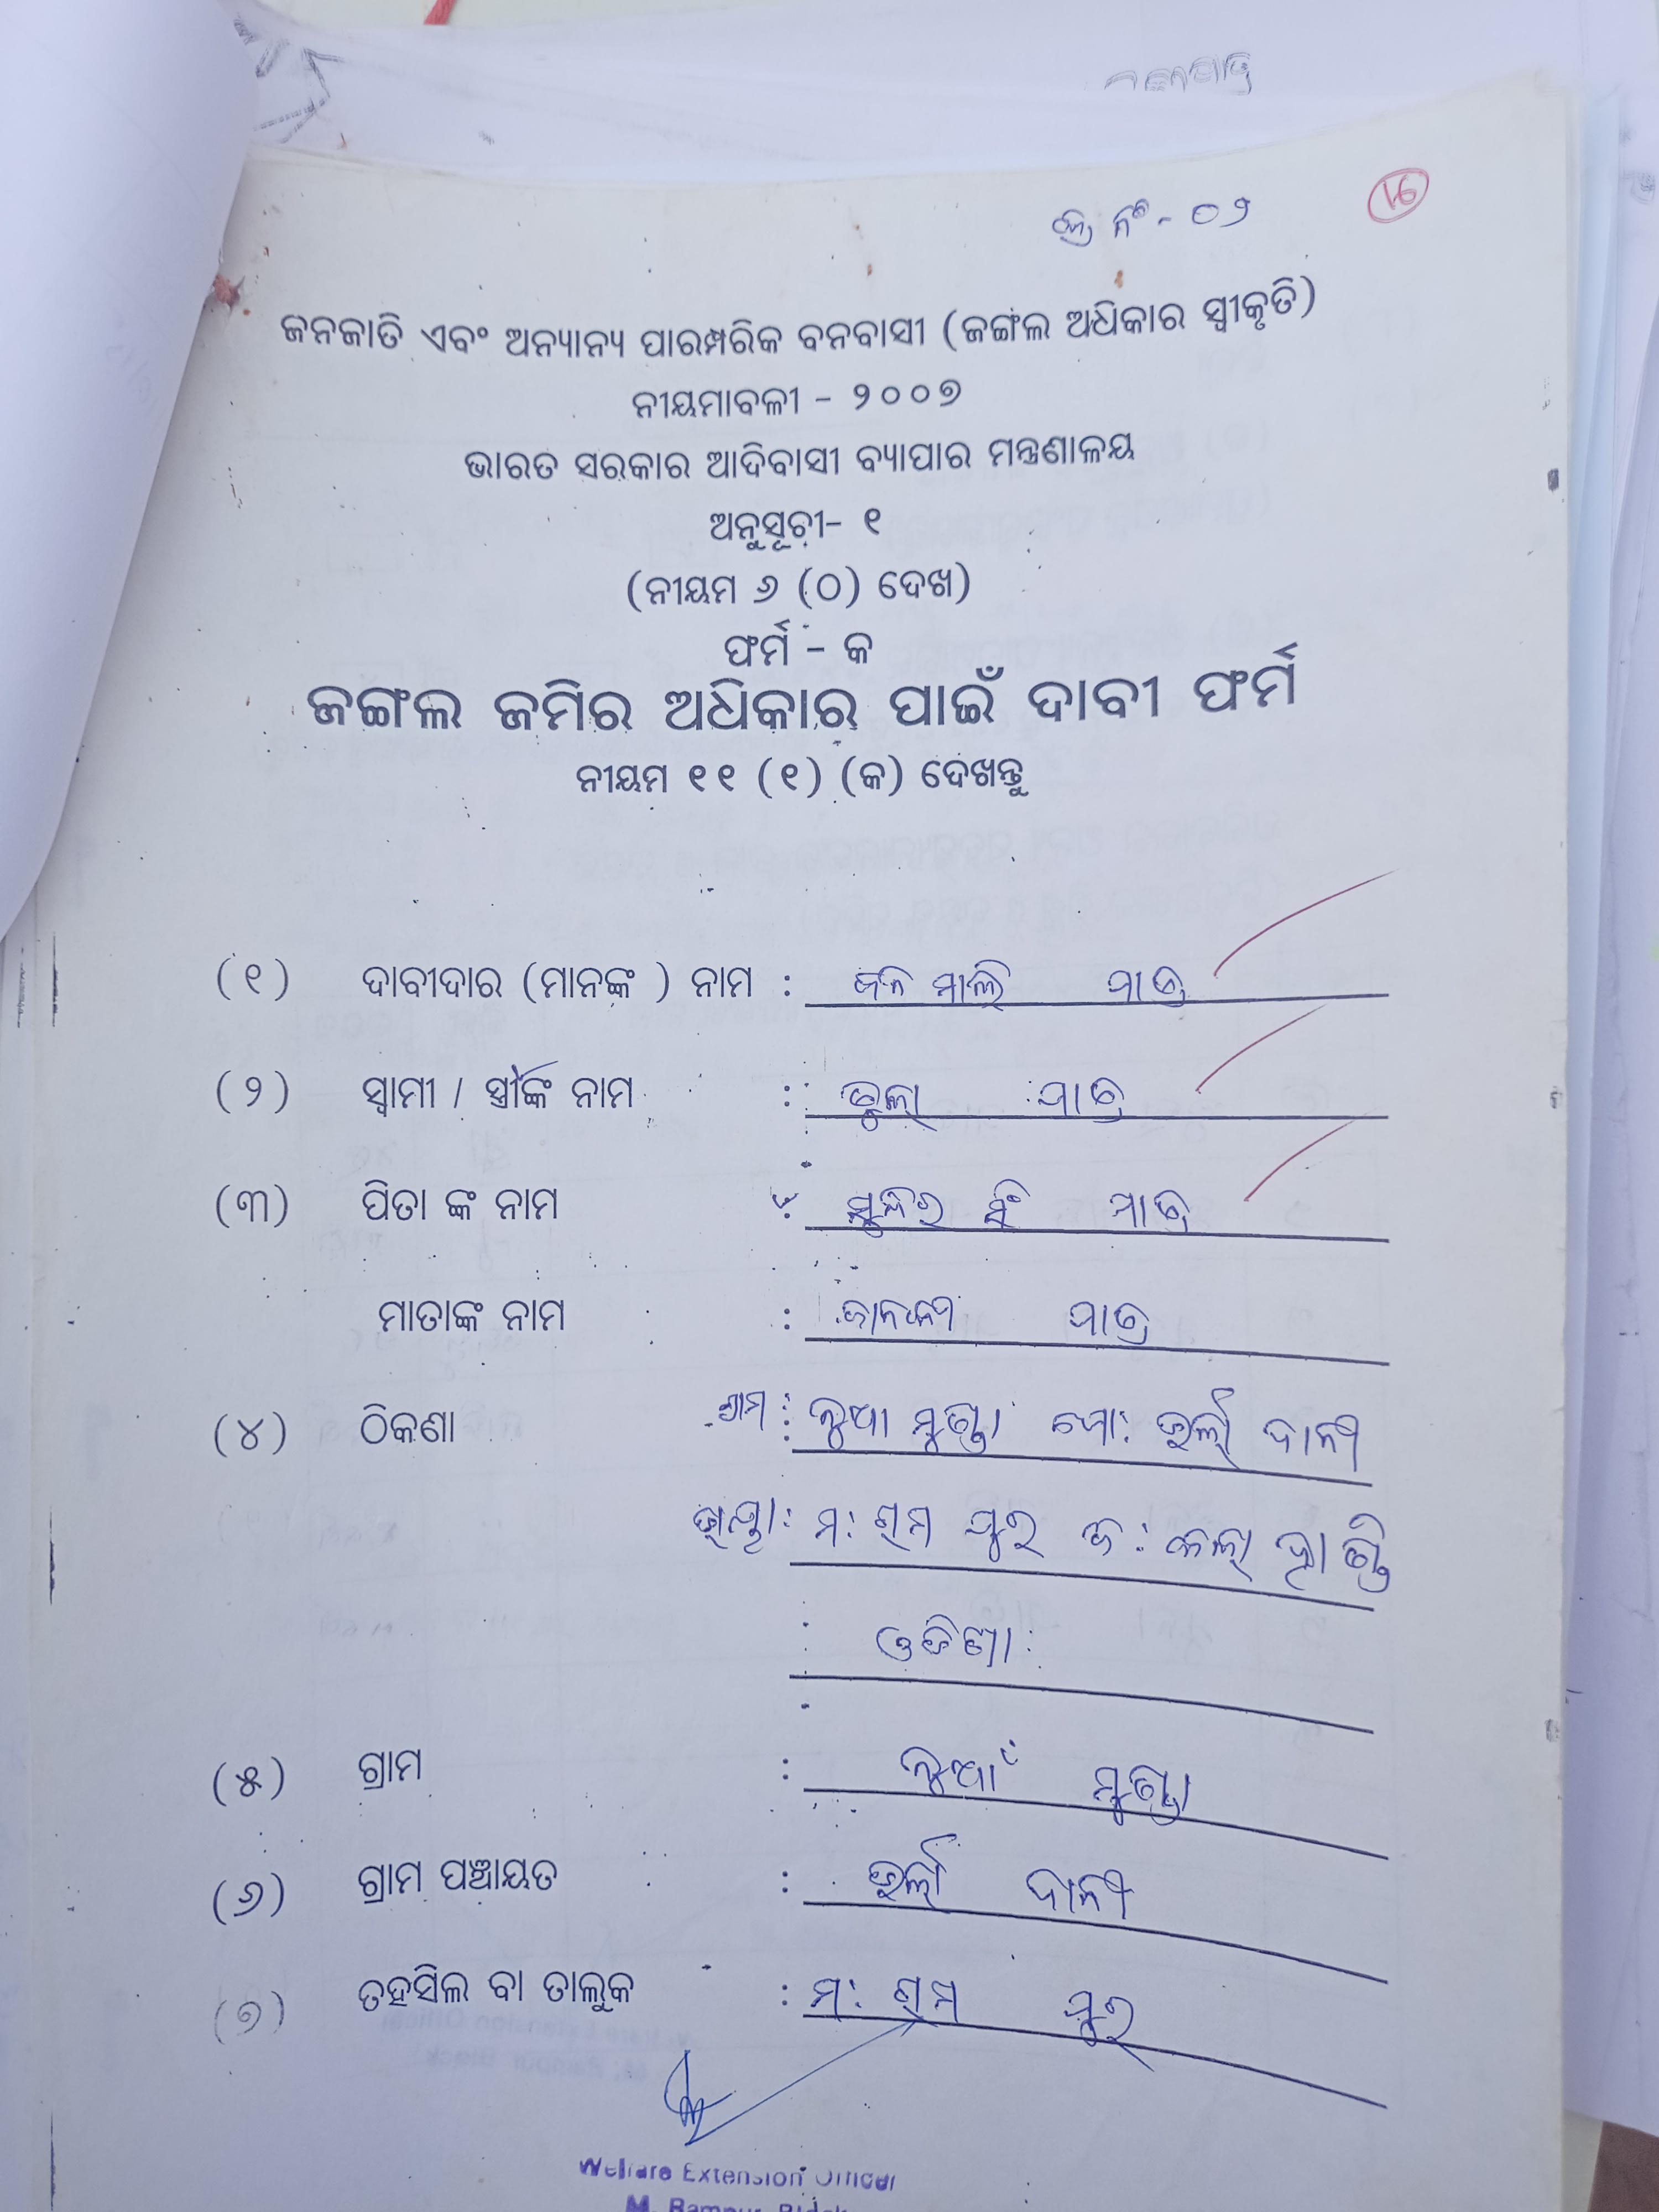 କ୍ର ନଂ - ୦୨
16
ଜନଜାତି ଏବଂ ଅନ୍ୟାନ୍ୟ ପାରମ୍ପରିକ ବନବାସୀ (ଜଙ୍ଗଲ ଅଧିକାର ସ୍ୱୀକୃତି)
ନୀୟମାବଳୀ - ୨୦୦୭
ଭାରତ ସରକାର ଆଦିବାସୀ ବ୍ୟାପାର ମନ୍ତ୍ରଣାଳୟ
ଅନୁସୂଚୀ- ୧
(ନୀୟମ ୬ (ଠ) ଦେଖ)
ଫର୍ମ - କ
ଜଙ୍ଗଲ ଜମିର ଅଧିକାର ପାଇଁ ଦାବୀ ଫର୍ମ
ନୀୟମ ୧୧ (୧) (କ) ଦେଖନ୍ତୁ
(୧) ଦାବୀଦାର (ମାନଙ୍କ ) ନାମ : ମାଲି ପାତ୍ର
(୨) ସ୍ୱାମୀ / ସ୍ତ୍ରୀଙ୍କ ନାମ : ତୁଲା ପାତ୍ର
(୩) ପିତା ଙ୍କ ନାମ : ସୁନ୍ଦର ସିଂ ପାତ୍ର
ମାତାଙ୍କ ନାମ : ଜାନକୀ ପାତ୍ର
(୪) ଠିକଣା ଗ୍ରାମ : ନୁଆ ମୁଣ୍ଡା ପୋ: ଦାନୀ
ମ: ରାମ ପୁର ଜି: କଳା ହାଣ୍ଡି
: ଓଡିଶା
(୫) ଗ୍ରାମ : ନୁଆଁ ମୁଣ୍ଡା
(୬) ଗ୍ରାମ ପଞ୍ଚାୟତ : ଦାନୀ
(୭) ତହସିଲ ବା ତାଲୁକ : ମ: ରାମ ପୁର
Welfare Extension Officer
M. Rampur Block